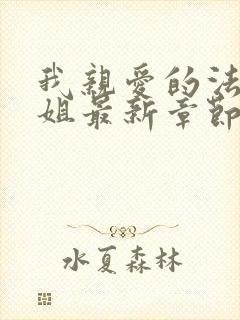 我親愛的法
姐最新章節
水夏森林